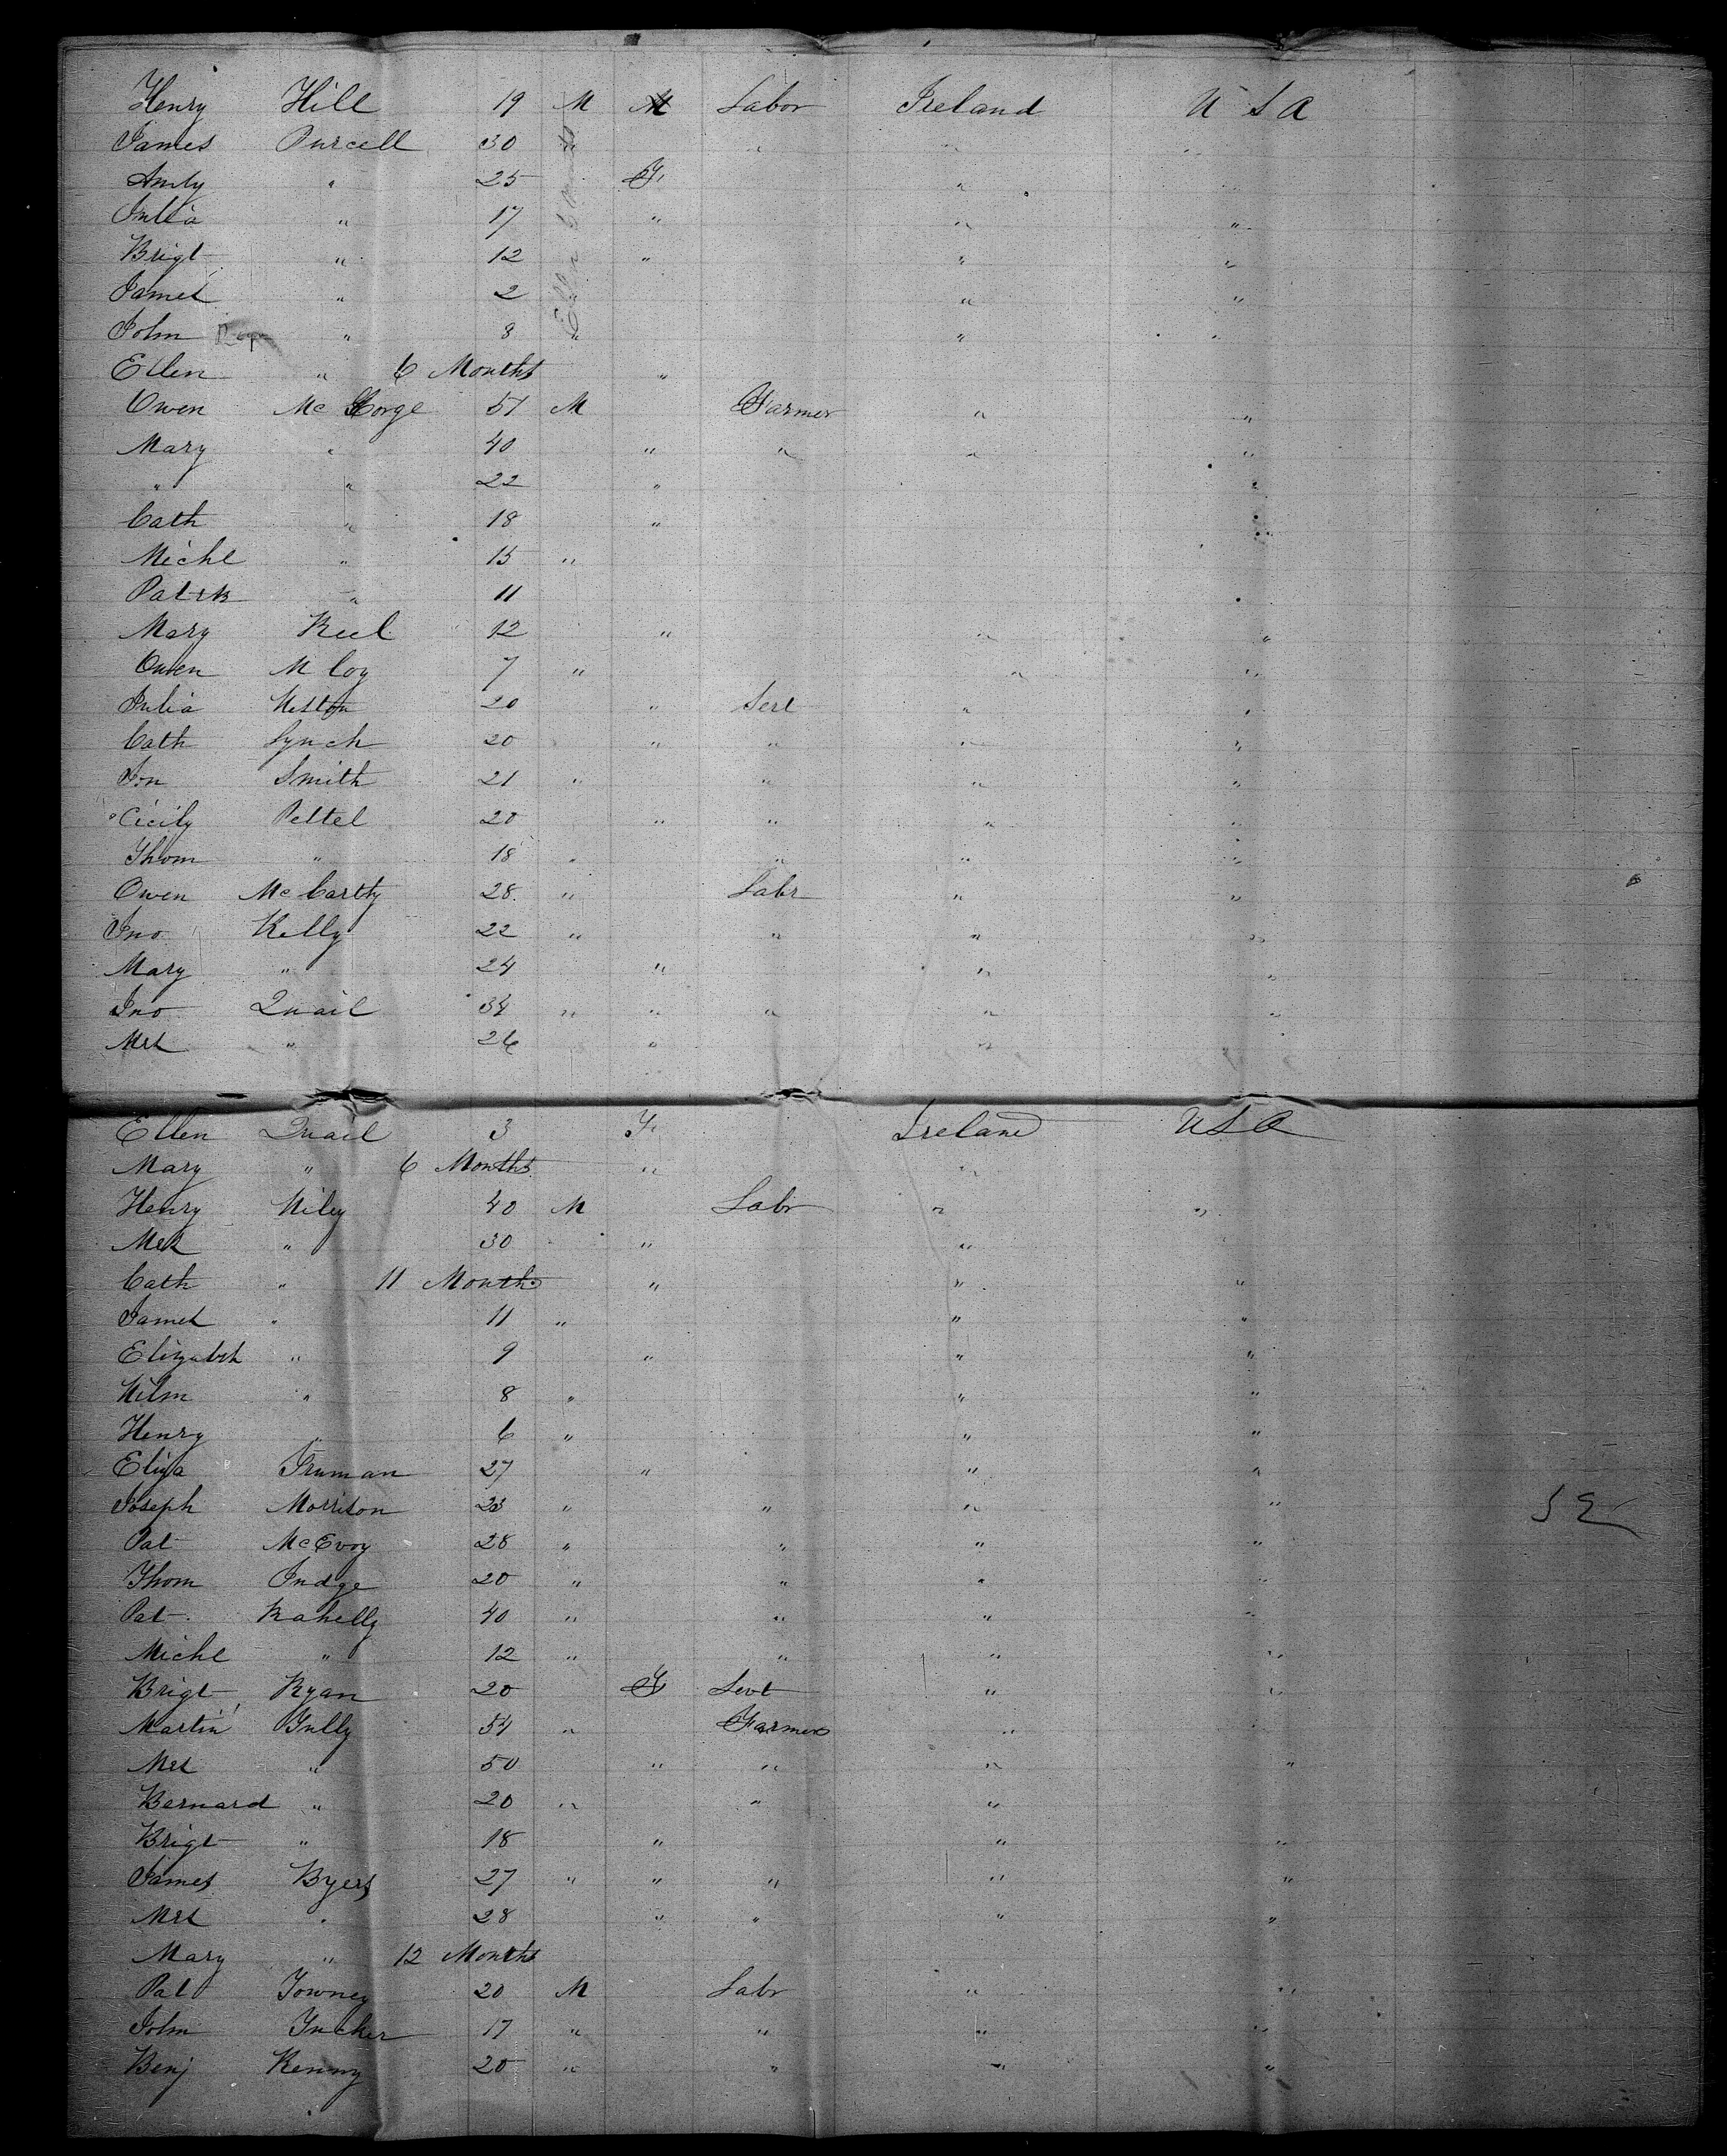 Henry Hill 19 M M Labor Ireland U S A
James Purcell 30 " " " "
Amly " 25 F " "
Julia " 17 " " "
Brigt " 12 " " "
James " 2 " "
John " 8 " " "
Ellen " 6 Months "
Owen Mc Gorge 51 M Farmer " "
Mary " 40 " " " "
" " 22 " "
Cath " 18 " "
Michl " 15 "
Patrk " 11 "
Mary Keel 12 " " "
Owen M Coy 7 " " "
Julia Weston 20 " Sert " "
Cath Lynch 20 " " " "
Jon Smith 21 " " " "
Cicily Pettel 20 " " " "
Thom " 18 " " " "
Owen Mc Carthy 28 " Labr " "
Jno Kelly 22 " " " "
Mary " 24 " " "
Jno Quail 34 " " " " "
Mrs " 26 " "
Ellen Quail 3 F Ireland U S A
Mary " 6 Months " "
Henry Wiley 40 M Labr " "
Mrs " 30 " "
Cath " 11 Months " " "
James " 11 " " "
Elizabth " 9 " " "
Wilm " 8 " " "
Henry " 6 " " "
Eliza Truman 27 " " "
Joseph Morrison 23 " " " "
Pat McEvoy 28 " " " "
Thom Judge 20 " " " "
Pat Kahelly 40 " " " "
Michl " 12 " " " "
Brigt Ryan 20 F Sevt " "
Martin Tully 54 " Farmer " "
Mrs " 50 " " " "
Bernard " 20 " " "
Brigt " 18 " " "
James Byers 27 " " " " "
Mrs " 28 " " " "
Mary " 12 Months
Pat Towney 20 M Labr " "
John Tucker 17 " " " "
Benj Kenny 20 " " " "